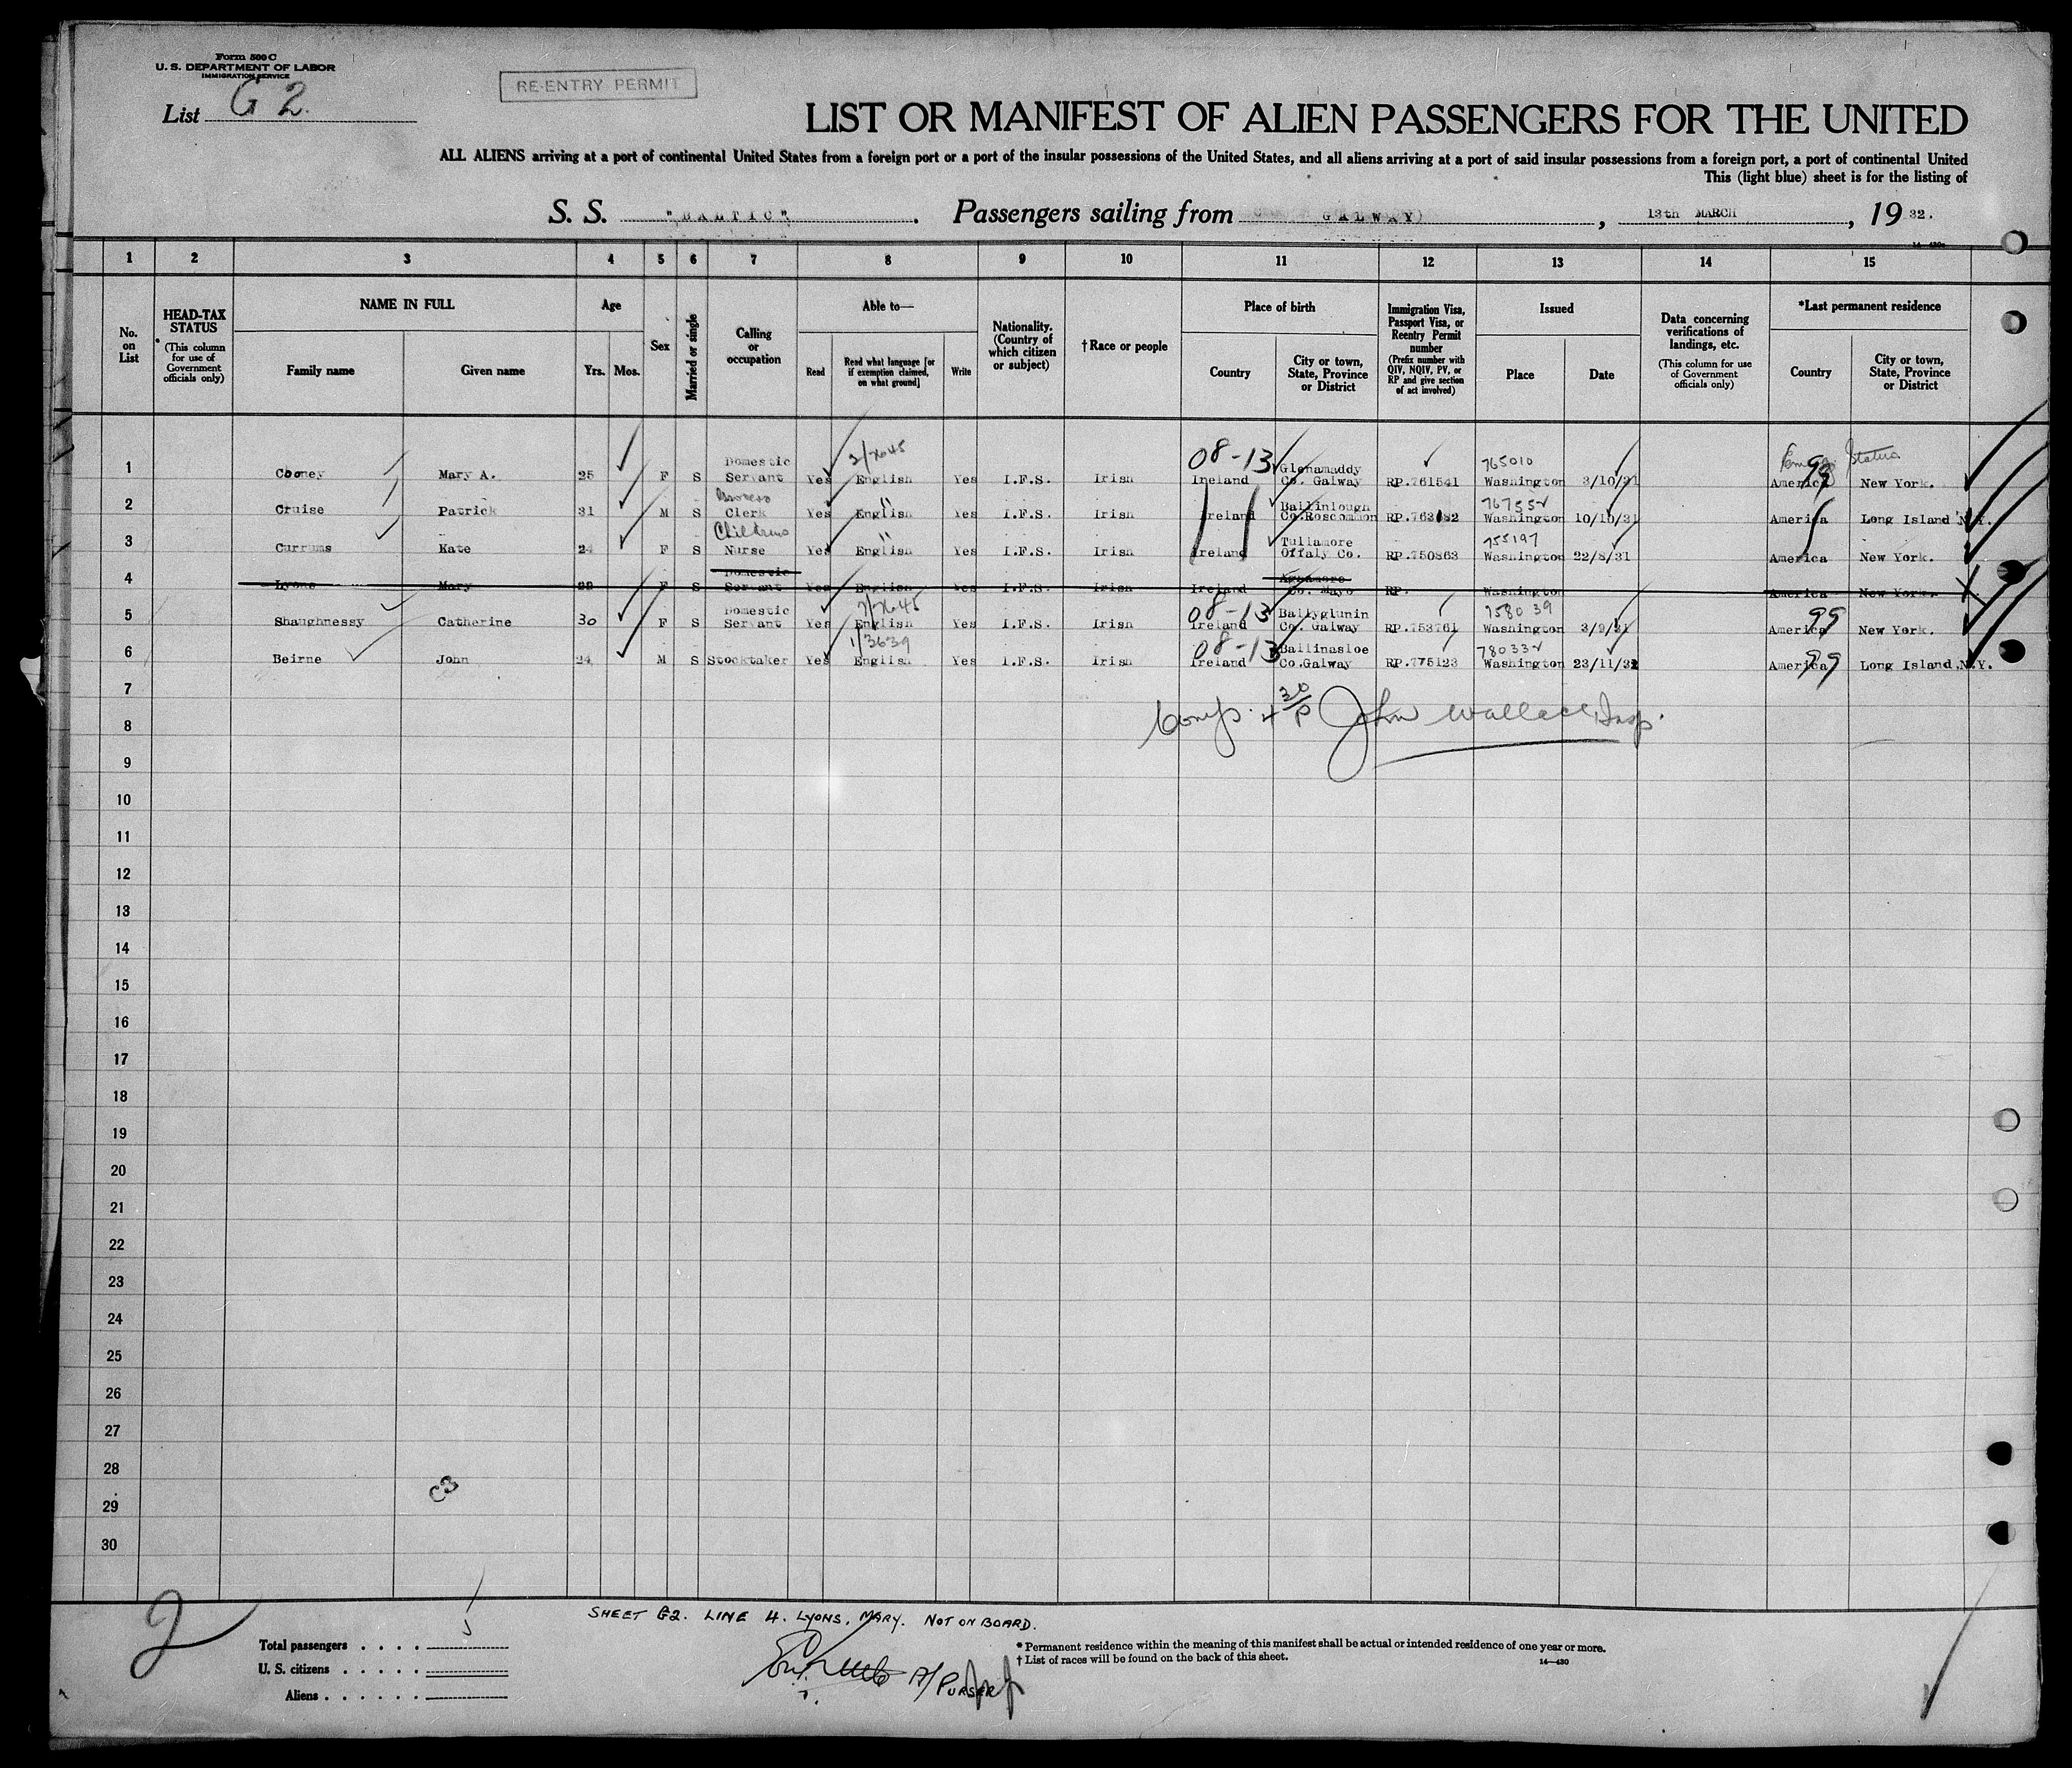 Form 500 C
U. S. DEPARTMENT OF LABOR
IMMIGRATION SERVICE
List G 2.
RE-ENTRY PERMIT
LIST OR MANIFEST OF ALIEN PASSENGERS FOR THE UNITED
ALL ALIENS arriving at a port of continental United States from a foreign port or a port of the insular possessions of the United States, and all aliens arriving at a port of said insular possessions from a foreign port, a port of continental United
This (light blue) sheet is for the listing of
S. S. "BALTIC". Passengers sailing from GALWAY), 13th MARCH, 19 32.
1 2 3 4 5 6 7 8 9 10 11 12 13 14 15
No. on List
HEAD-TAX STATUS
(This column for use of Government officials only)
NAME IN FULL
Family name Given name
Age
Yrs. Mos.
Sex
Married or single
Calling or occupation
Able to—
Read
Read what language [or if exemption claimed, on what ground]
Write
Nationality. (Country of which citizen or subject)
†Race or people
Place of birth
Country
City or town, State, Province or District
Immigration Visa, Passport Visa, or Reentry Permit number
(Prefix number with QIV, NQIV, PV, or RP and give section of act involved)
Issued
Place Date
Data concerning verifications of landings, etc.
(This column for use of Government officials only)
*Last permanent residence
Country
City or town, State, Province or District
1 Cooney Mary A. 25 F S Domestic Servant Yes 2/x645 English Yes I.F.S. Irish 08-13 Ireland Glenamaddy Co. Galway RP.761541 765010 Washington 3/10/31 99 America New York.
2 Cruise Patrick 31 M S Clerk Yes English " Yes I.F.S. Irish Ireland Ballinlough Co.Roscommon RP.763182 Washington 10/10/31 America Long Island N.Y.
3 Currums Kate 24 F S Childrens Nurse Yes English " Yes I.F.S. Irish Ireland Tullamore Offaly Co. RP.750863 755197 Washington 22/8/31 America New York.
4 Lyons Mary F S Domestic Servant Yes English Yes I.F.S. Irish Ireland Co. Mayo RP. Washington America New York.
5 Shaughnessy Catherine 30 F S Domestic Servant Yes English Yes I.F.S. Irish 08-13 Ireland Ballyglunin Co. Galway RP.753761 758039 Washington 3/9/31 99 America New York.
6 Beirne John 24 M S Stocktaker Yes 1/3639 English Yes I.F.S. Irish 08-13 Ireland Ballinasloe Co.Galway RP.775123 Washington 23/11/31 99 America Long Island,N.Y.
7
Comp. 4 30/P John Wallace, Insp.
8
9
10
11
12
13
14
15
16
17
18
19
20
21
22
23
24
25
26
27
28
C3
29
30
2
SHEET G2. LINE 4. LYONS, MARY. NOT ON BOARD.
A/ PURSER
Total passengers . . . . 5
U. S. citizens . . . . .
Aliens . . . . . .
* Permanent residence within the meaning of this manifest shall be actual or intended residence of one year or more.
† List of races will be found on the back of this sheet.
14—430